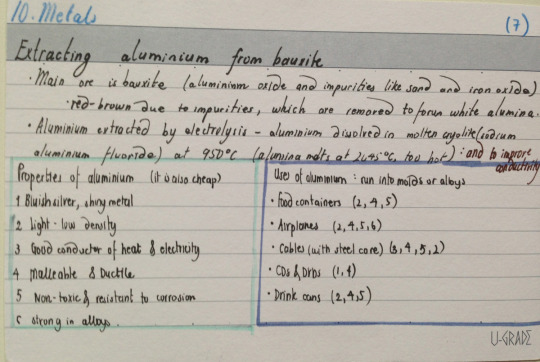 10. Metals
(7)
Extracting aluminium from bauxite
· Main ore is bauxite (aluminium oxide and impurities like sand and iron oxide)
· red-brown due to impurities, which are removed to form white alumina.
· Aluminium extracted by electrolysis - aluminium disolved in molten cryolite (sodium
aluminium fluoride) at 950°C (alumina melts at 2045°C, too hot) : and to improve
conductivity
Properties of aluminium (it is also cheap)
1 Bluish silver, shiny metal
2 Light - low density
3 Good conductor of heat & electricity
4 Malleable & Ductile
5 Non-toxic & resistant to corrosion
6 strong in alloys.
Uses of aluminium : run into molds or alloys
· Food containers (2,4,5)
· Airplanes (2,4,5,6)
· Cables (with steel core) (3,4,5,2)
· CDs & DVDs (1,4)
· Drink cans (2,4,5)
U-GRADE